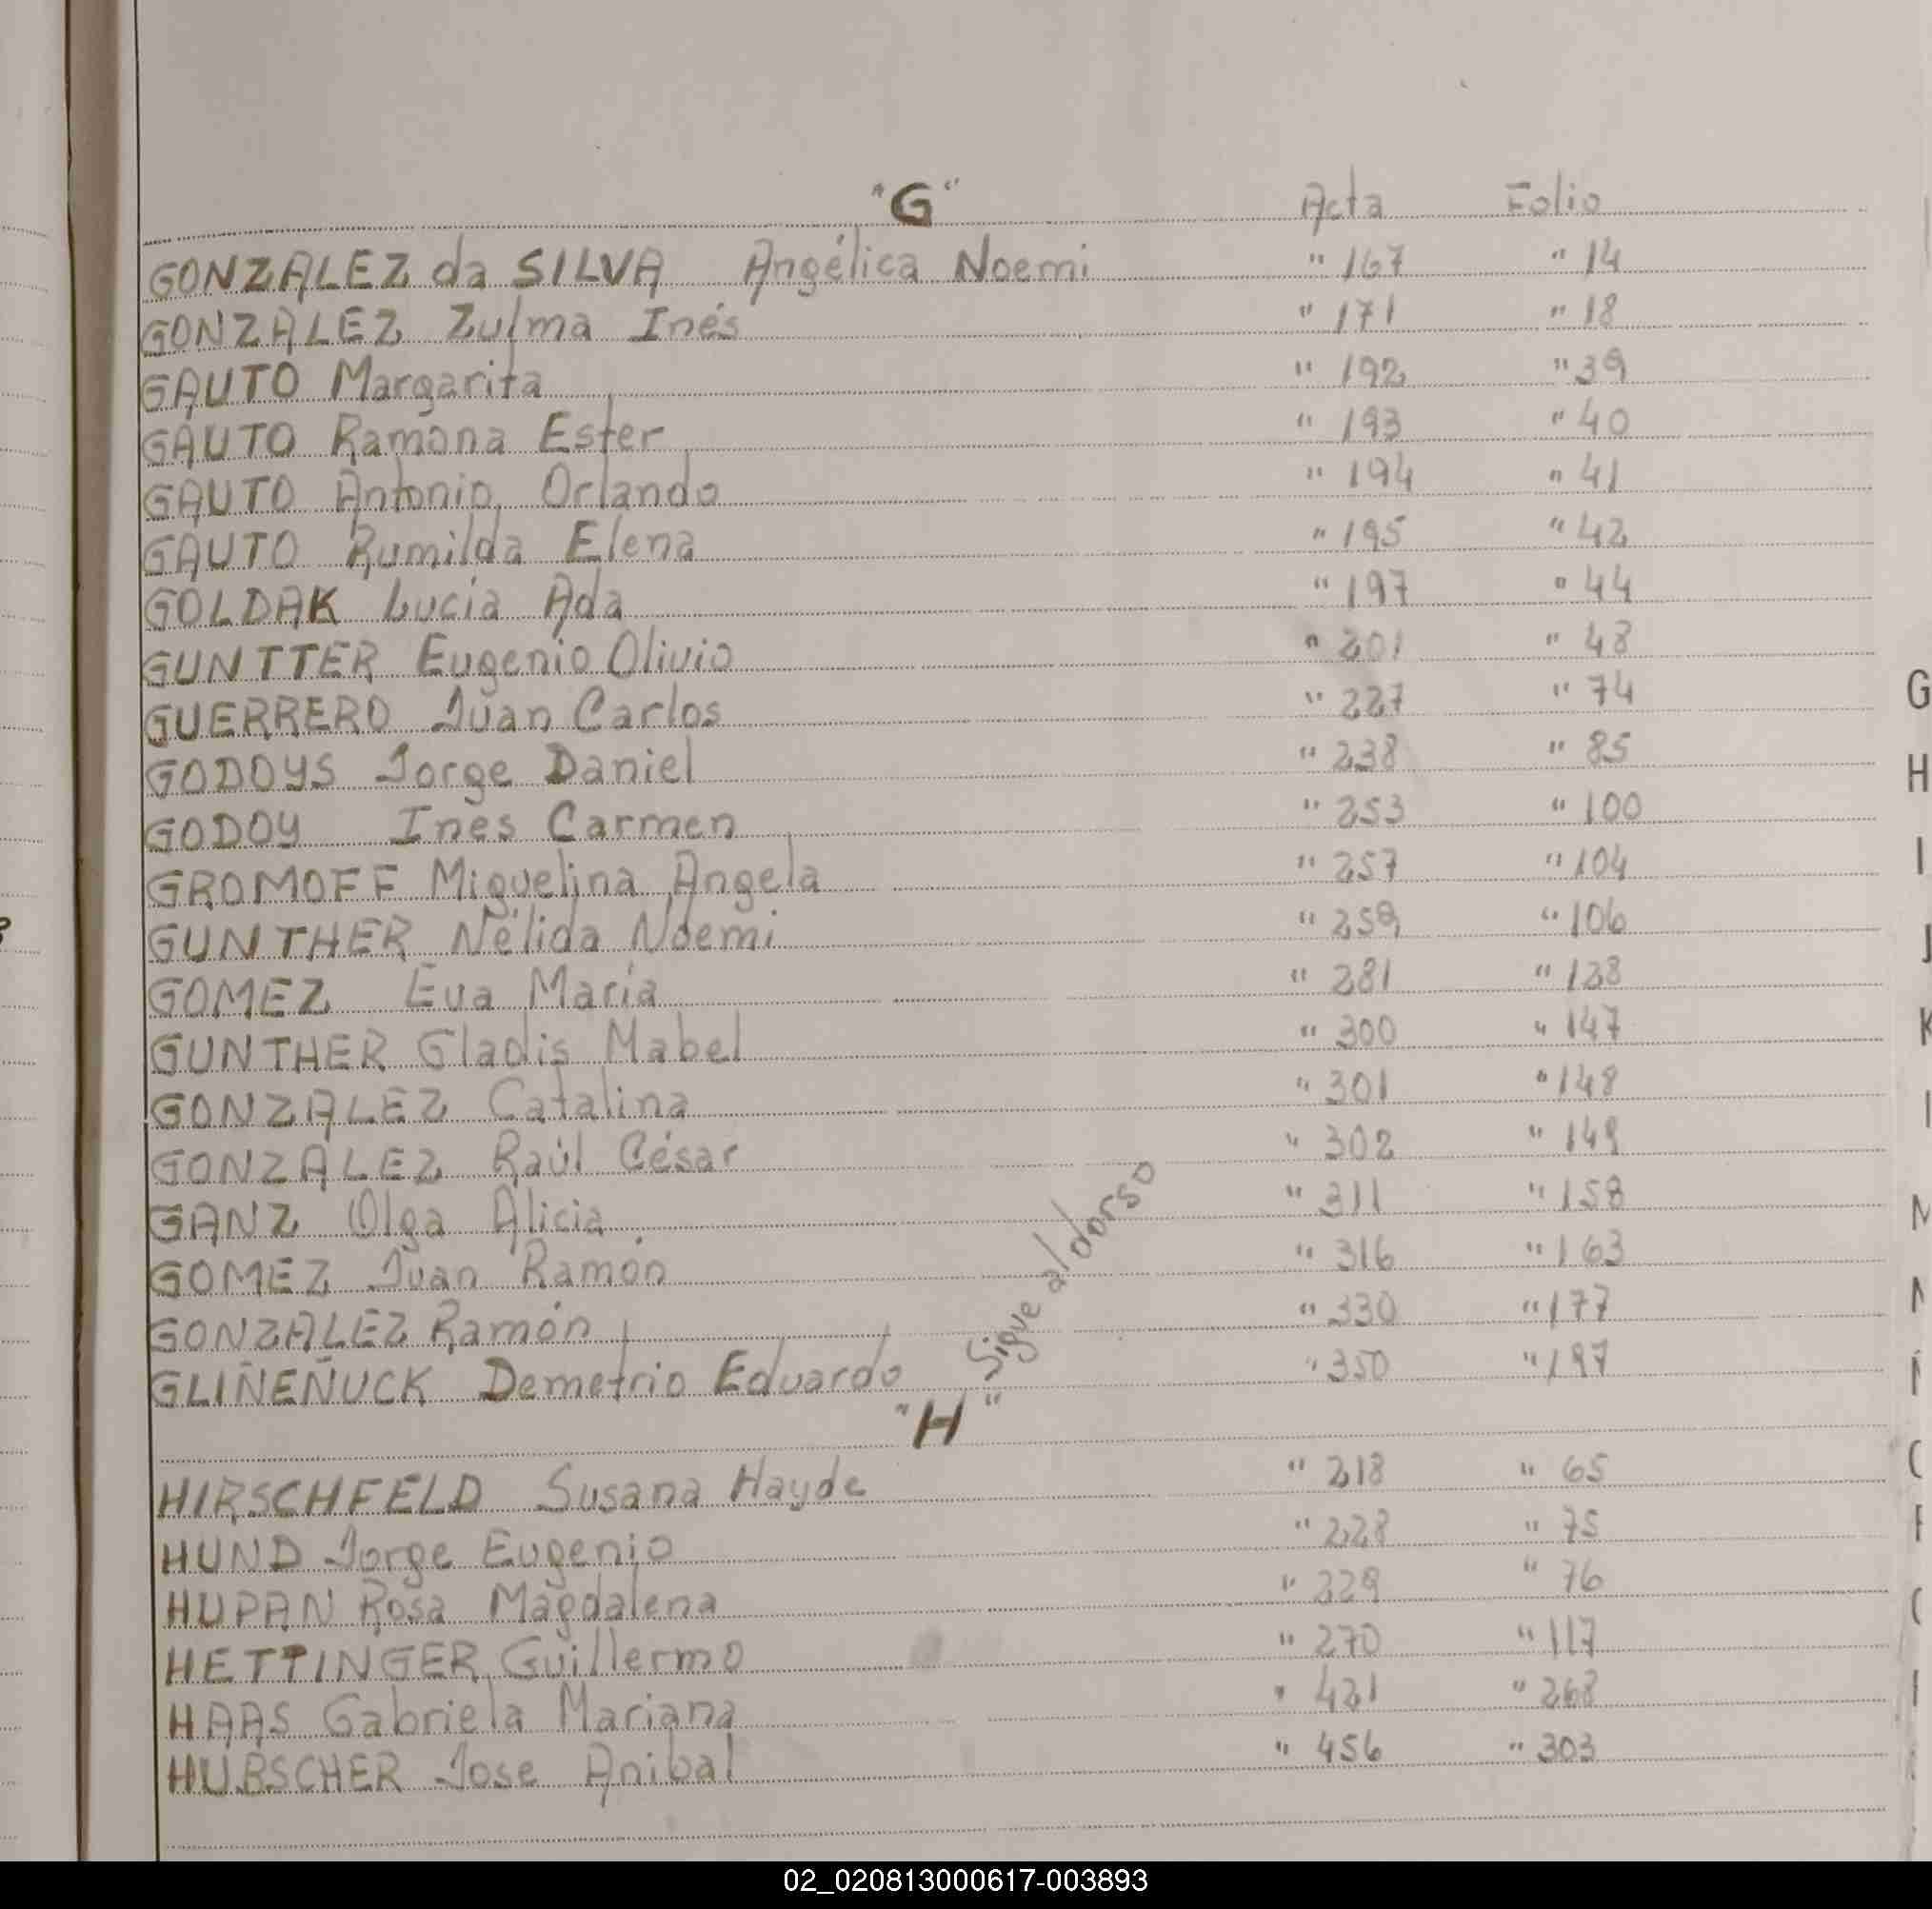 "G" Acta Folio
GONZALEZ da SILVA Angélica Noemi " 167 " 14
GONZALEZ Zulma Inés " 171 " 18
GAUTO Margarita " 192 " 39
GAUTO Ramona Ester " 193 " 40
GAUTO Antonio Orlando " 194 " 41
GAUTO Rumilda Elena " 195 " 42
GOLDAK Lucia Ada " 197 " 44
GUNTTER Eugenio Olivio " 201 " 48
GUERRERO Juan Carlos " 227 " 74
GODOYS Jorge Daniel " 238 " 85
GODOY Ines Carmen " 253 " 100
GROMOFF Miguelina Angela " 257 " 104
GUNTHER Nélida Noemi " 259 " 106
GOMEZ Eva María " 281 " 128
GUNTHER Gladis Mabel " 300 " 147
GONZALEZ Catalina " 301 " 148
GONZALEZ Raúl César " 302 " 149
GANZ Olga Alicia " 311 " 158
GOMEZ Juan Ramón " 316 " 163
GONZALEZ Ramón " 330 " 177
GLIÑEÑUCK Demetrio Eduardo " 350 " 197
Sigue al dorso
"H"
HIRSCHFELD Susana Hayde " 218 " 65
HUND Jorge Eugenio " 228 " 75
HUPAN Rosa Magdalena " 229 " 76
HETTINGER Guillermo " 270 " 117
HAAS Gabriela Mariana " 421 " 268
HUBSCHER Jose Anibal " 456 " 303
G
H
I
J
K
M
02_020813000617-003893